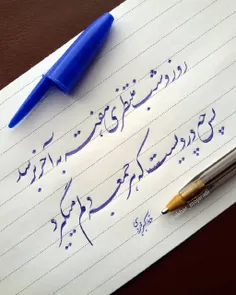 روز و شب منتظری هفته به آخر برسد
پس چه دردیست که هر جمعه دلم میگیرد